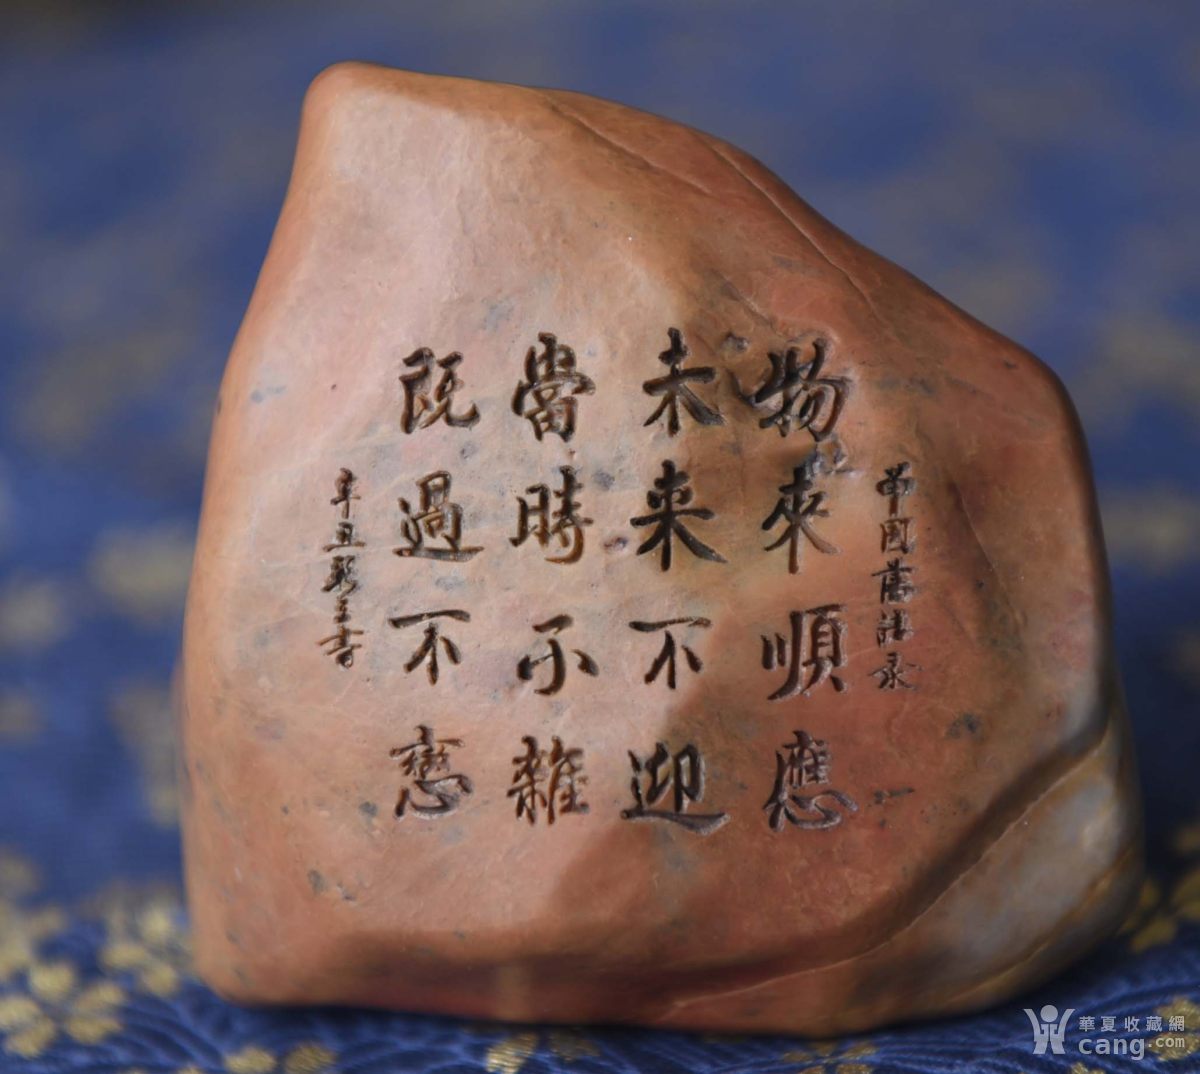 曾國藩語录
物來順應
未来不迎
當時不雜
既過不戀
辛丑 書
華夏收藏網
cang.com